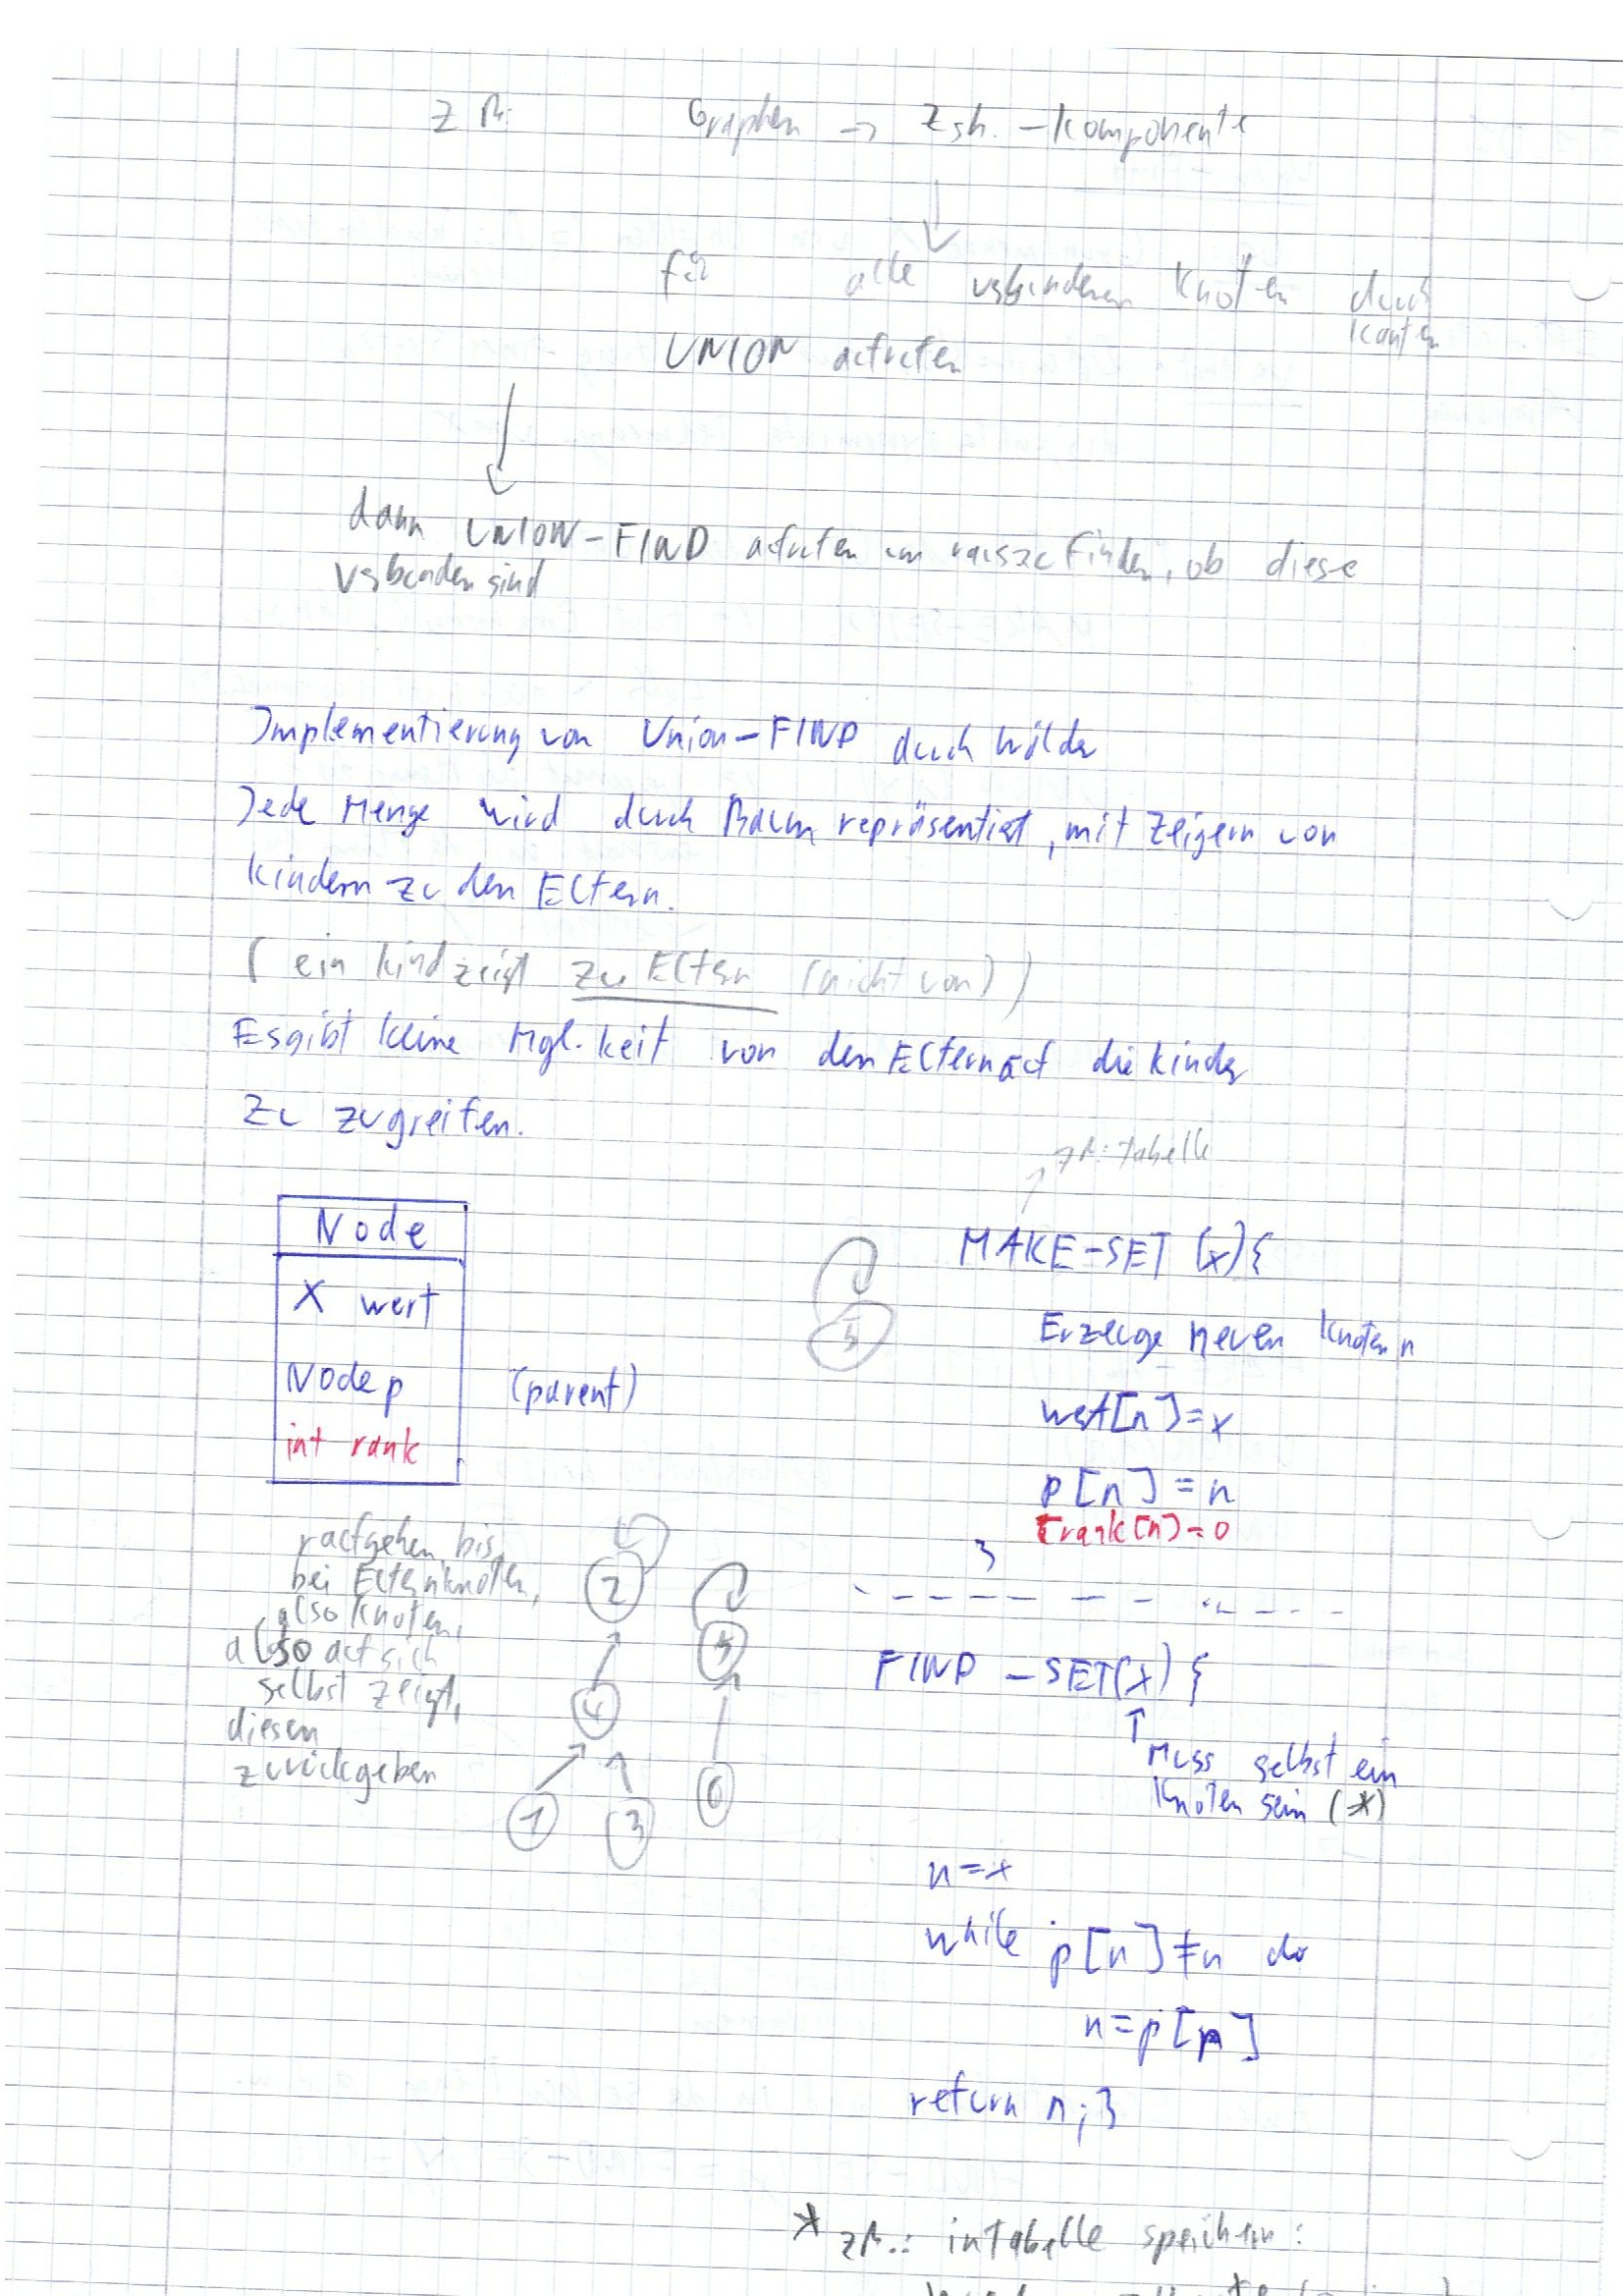 z B: Graphen → Zsh. - Komponente
für alle verbundenen Knoten durch Kanten
UNION aufrufen
dann UNION-FIND aufrufen um rauszufinden, ob diese
verbunden sind
Implementierung von Union-FIND durch Wälder
Jede Menge wird durch Baum repräsentiert, mit Zeigern von
Kindern zu den Eltern.
( ein Kind zeigt zu Eltern (nicht von) )
Es gibt keine Mgl.keit von den Eltern auf die Kinder
zu zugreifen.
zB: Tabelle
Node
X wert
Node p (parent)
int rank
5
MAKE-SET (x){
Erzeuge neuen Knoten n
wert[n]=x
p[n]=n
rank[n]=0
}
raufgehen bis
bei Elternknoten,
also Knoten,
also auf sich
selbst zeigt,
diesen
zurückgeben
2
5
4
1
3
6
FIND-SET(x) {
↑
Muss selbst ein
Knoten sein (*)
n=x
while p[n]≠n do
n=p[n]
return n;}
* zB.: in Tabelle speichern: